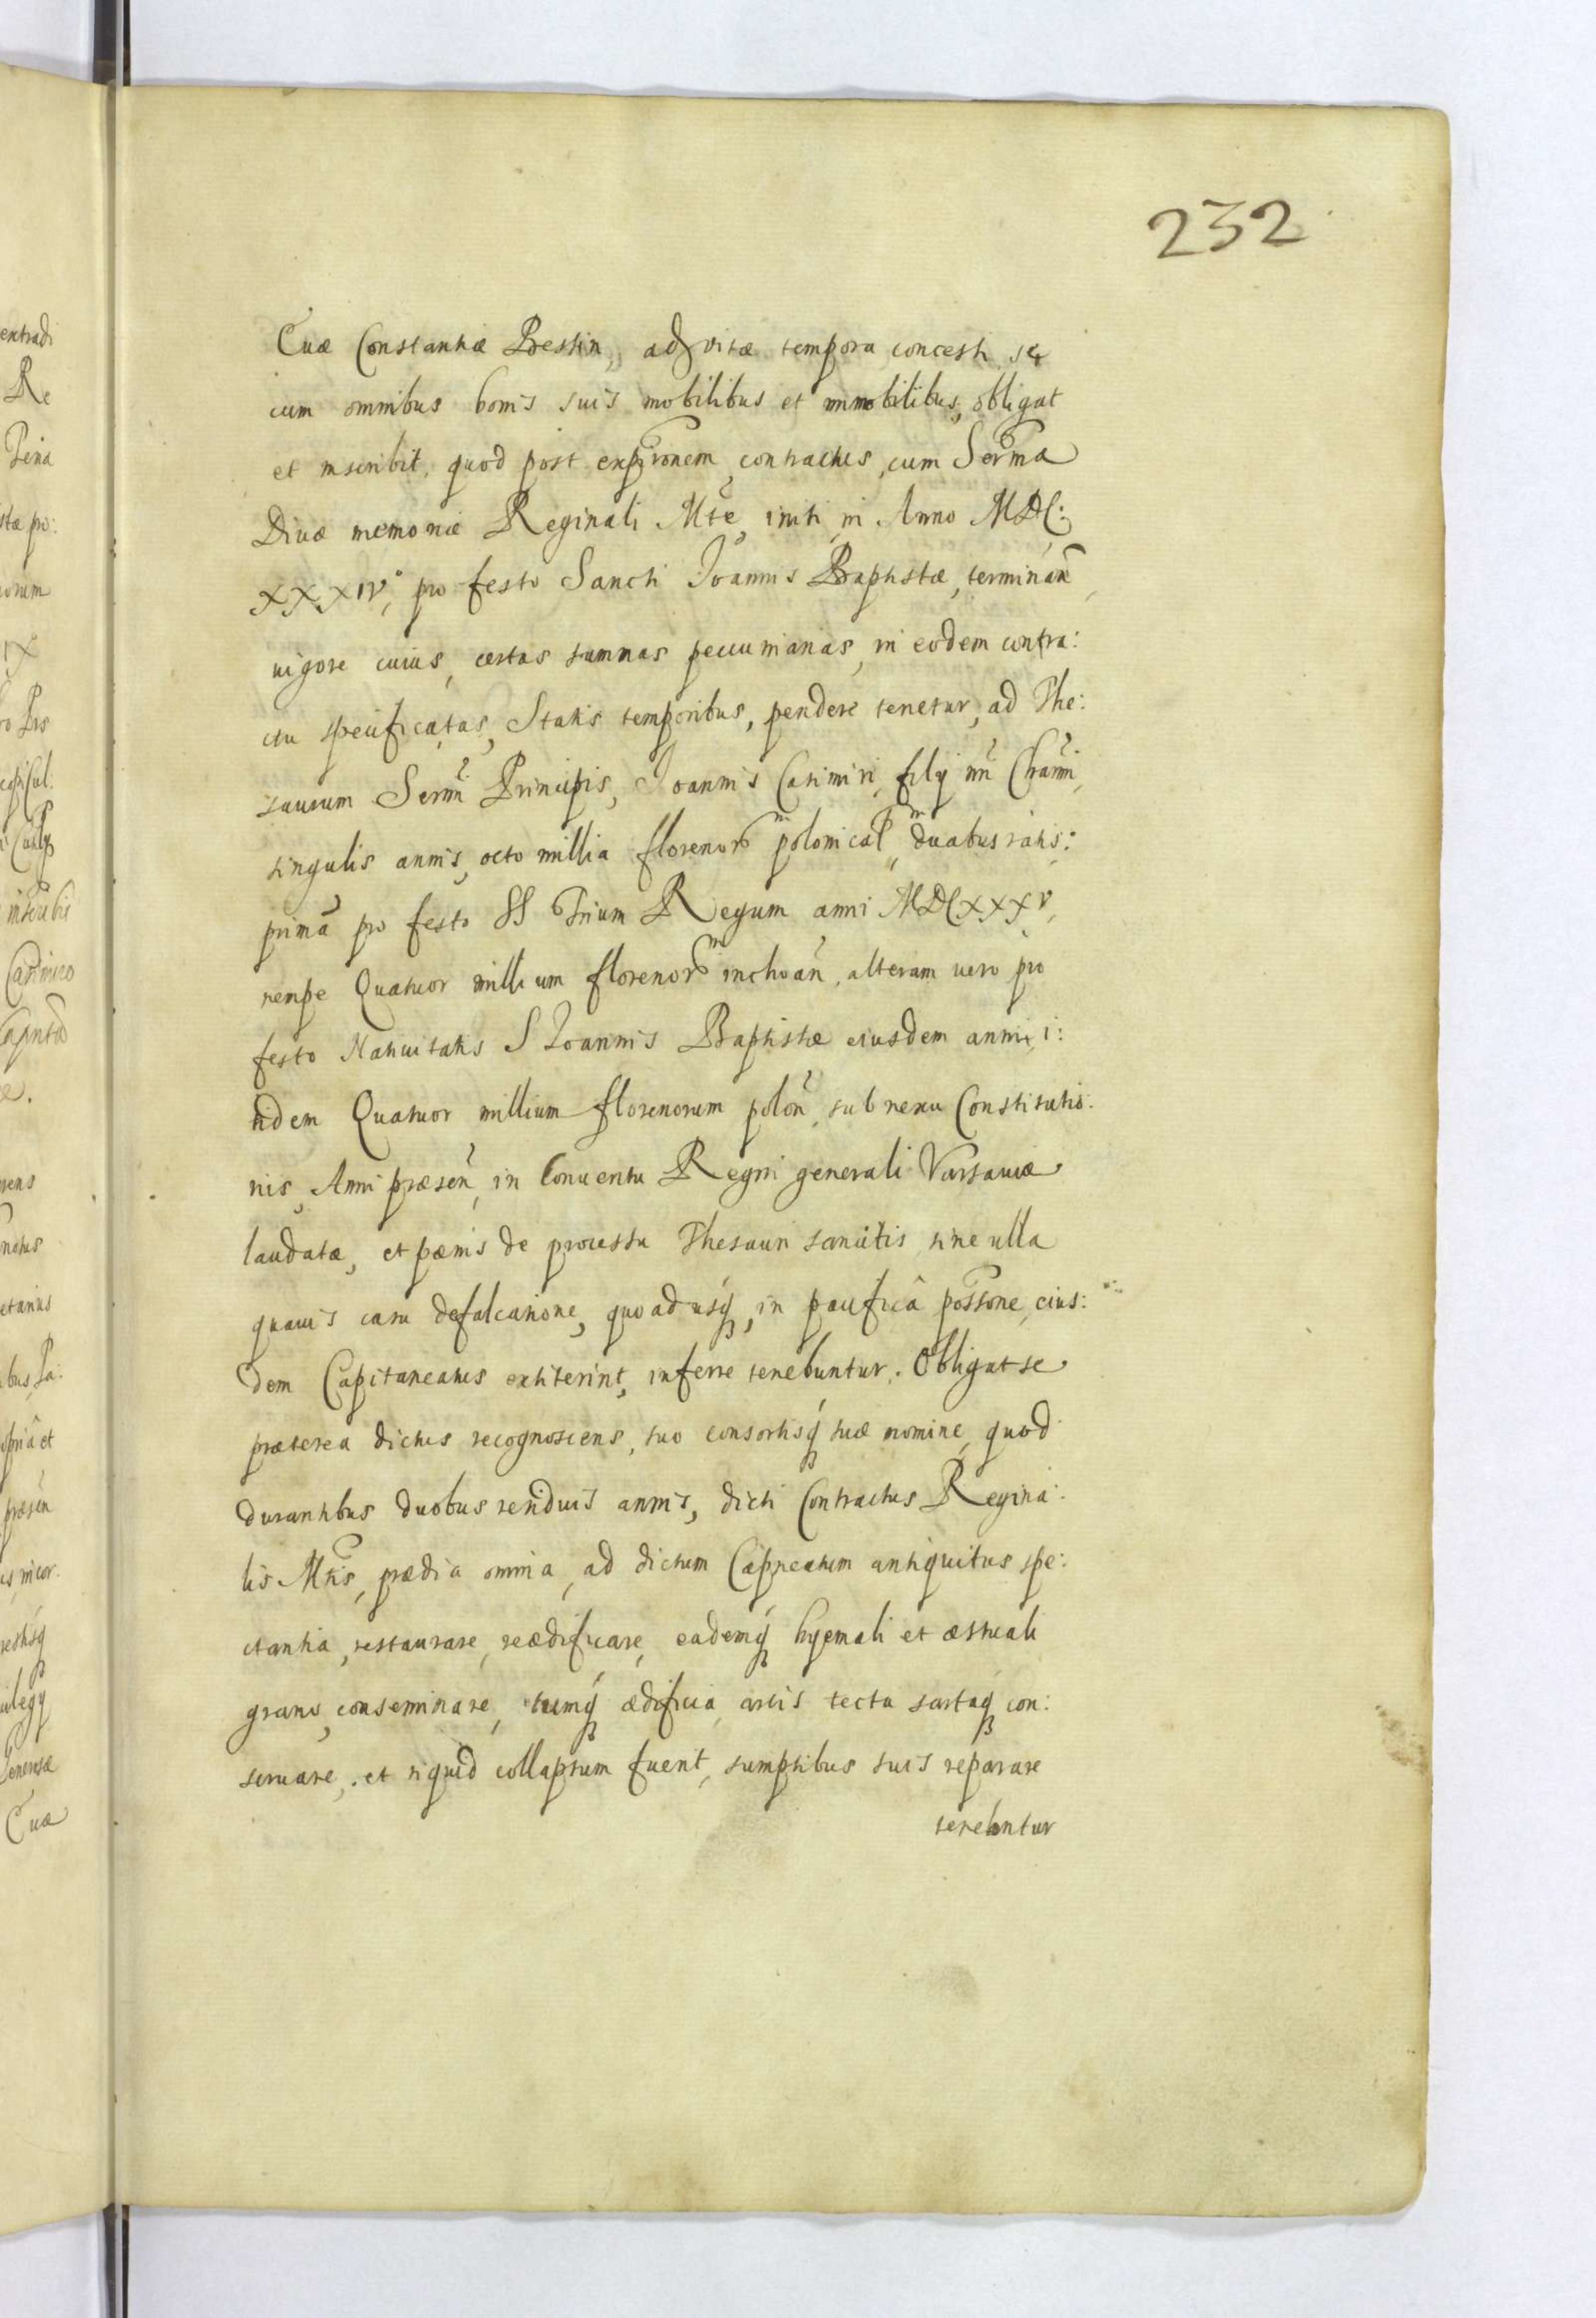 232
Euæ Constantiæ Bessin, ad vitæ tempora concessi, se
cum omnibus bonis suis mobilibus et immobilibus, obligat
et inscribit, quod post expironem contractus, cum Serma
Diuæ memoriæ Reginali Mte, initi, in Anno MDC:
XXXIV°, pro festo Sancti Joannis Baptistæ, terminan̄,
uigore cuius, certas summas pecuniarias, in eodem contra:
ctu specificatas, Statis temporibus, pendere tenetur, ad The:
saurum Sermi Principis, Joannis Casimiri, filij nri Charmi,
singulis annis, octo millia florenorum polonical, duabus ratis:
primā pro festo SS Trium Regum anni MDCXXXV,
nempe Quatuor millium florenorum inchoan̄, alteram uero pro
festo Natiuitatis S Joannis Baptistæ eiusdem anni, i:
tidem Quatuor millium florenorum polon̄, sub nexu Constitutio:
nis, Anni præsen̄, in Conuentu Regni generali Varsauiæ
laudatæ, et pænis de processu Thesauri sancitis, sine ulla
quauis casu defalcatione, quoad usq, in pacificâ possone, eius:
dem Capitaneatus extiterint, inferre tenebuntur. Obligat se
præterea dictus recognoscens, suo consortisq suæ nomine, quod
durantibus duobus residuis annis, dicti Contractus Regina:
lis Mtis, prædia omnia, ad dictum Capneatum antiquitus spe:
ctantia, restaurare, reædificare, eademq hyemali et æstiuali
grano, conseminare, tumq ædificia, arcis tecta sartaq con:
seruare, et siquid collapsum fuerit, sumptibus suis reparare
tenebuntur
extradi
Re
stæ pro:
orum
IX
Casimiro
præsen̄
Euæ